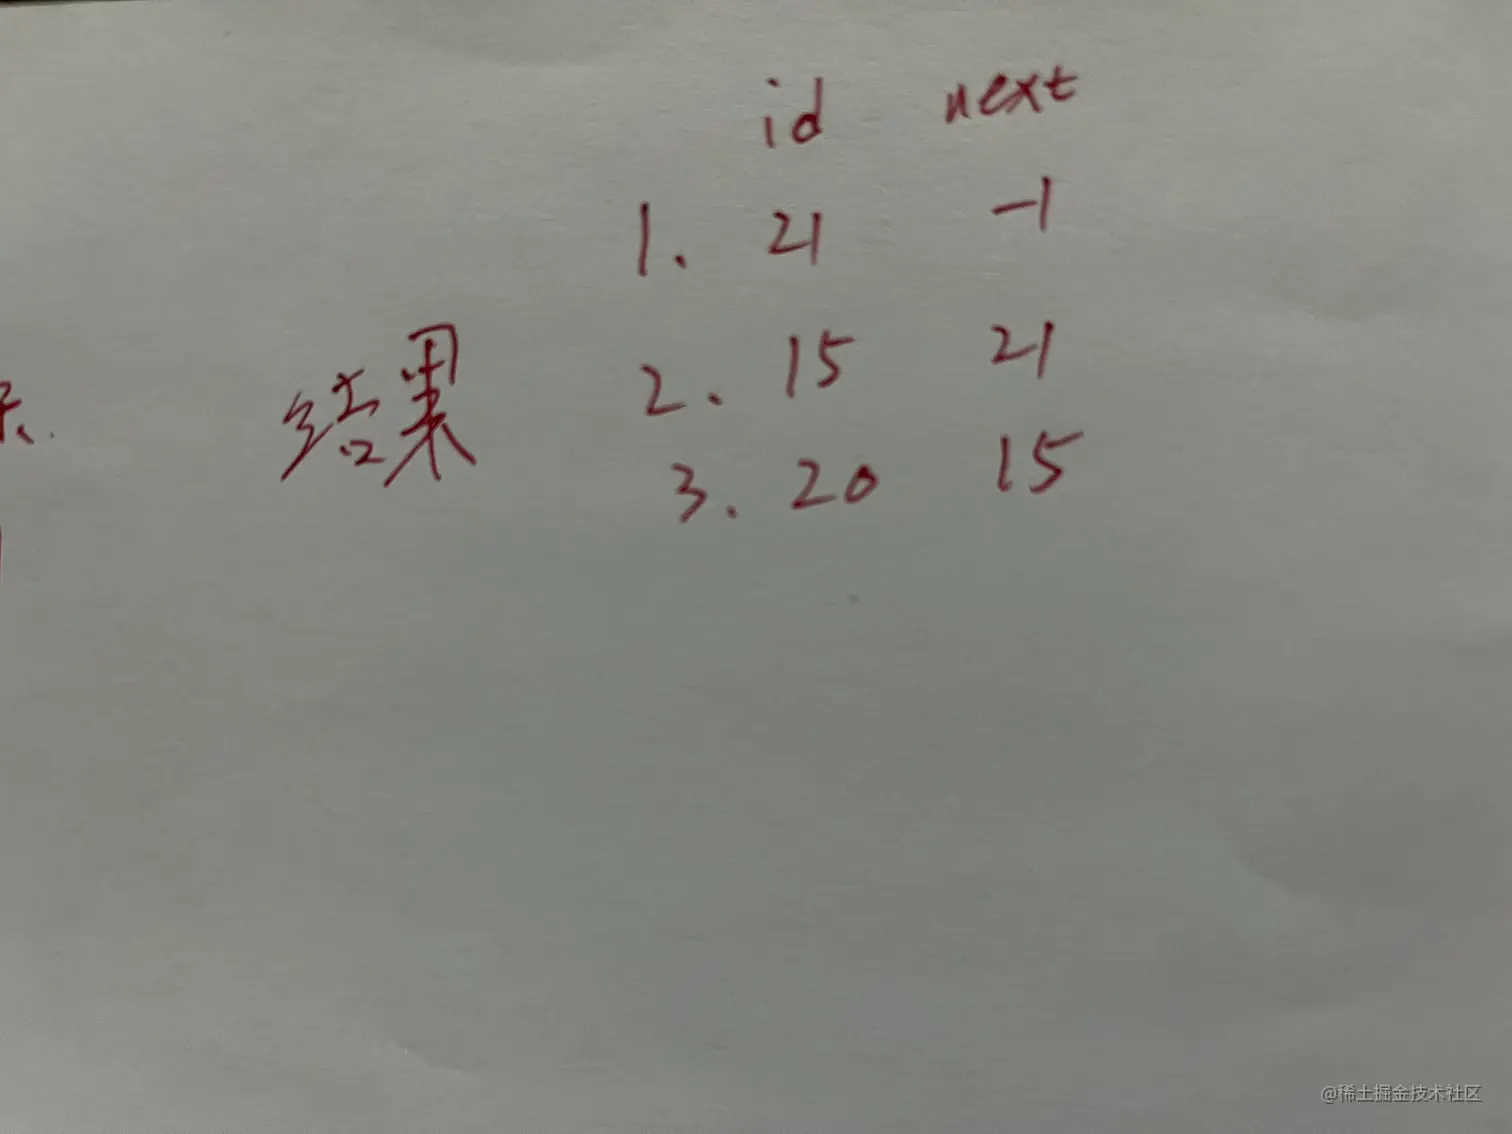 id next
1. 21 -1
结果
2. 15 21
3. 20 15
@稀土掘金技术社区